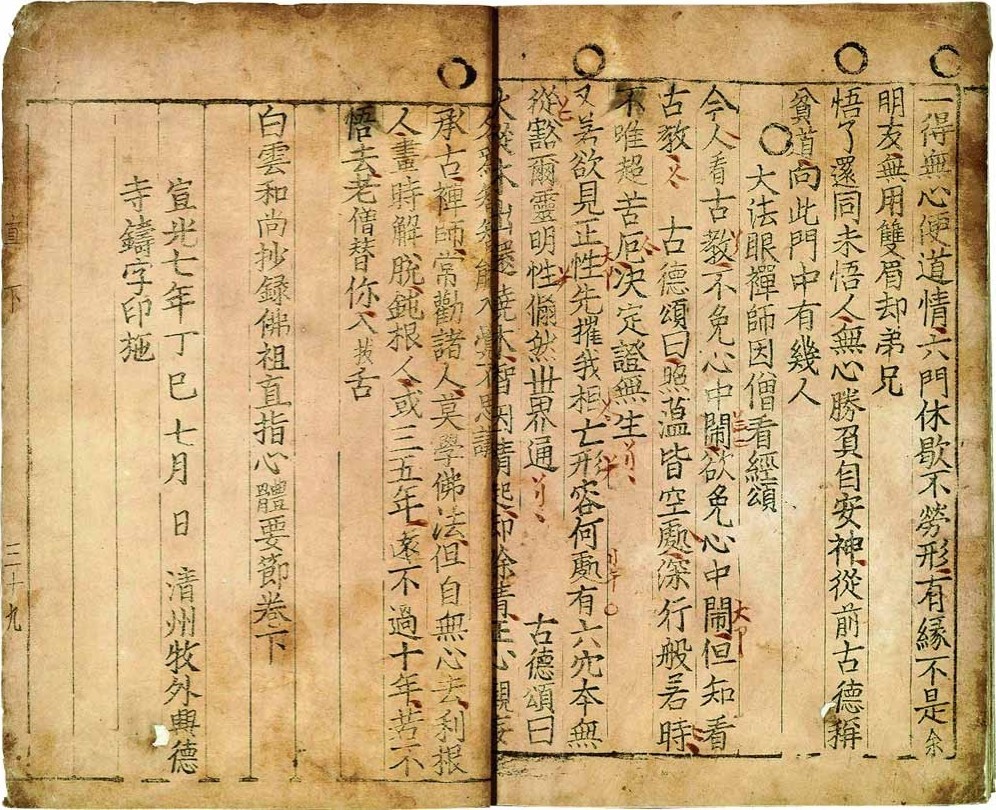 一得無心便道情六門休歇不勞形有緣不是余
明友無用雙眉却弟兄
悟了還同未悟人無心勝負自安神從前古德稱
貧道向此門中有幾人
大法眼禪師因僧看經頌
今人看古教不免心中鬧欲免心中鬧但知看
古教 古德頌曰照蘊皆空處深行般若時
不唯超苦厄決定證無生
又若欲見正性先摧我相亡形容何處有六穴本無
從豁爾靈明性翛然世界通 古德頌曰
火從木出還燒木智因情起却除情 心觀妄
能入覺不思議
承古禪師常勸諸人莫學佛法但自無心去利根
人晝時解脫鈍根人或三五年遠不過十年若不
悟去老僧替你入拔舌
白雲和尚抄錄佛祖直指心體要節卷下
宣光七年丁巳七月 日 清州牧外興德
寺鑄字印施
直 下 三十九